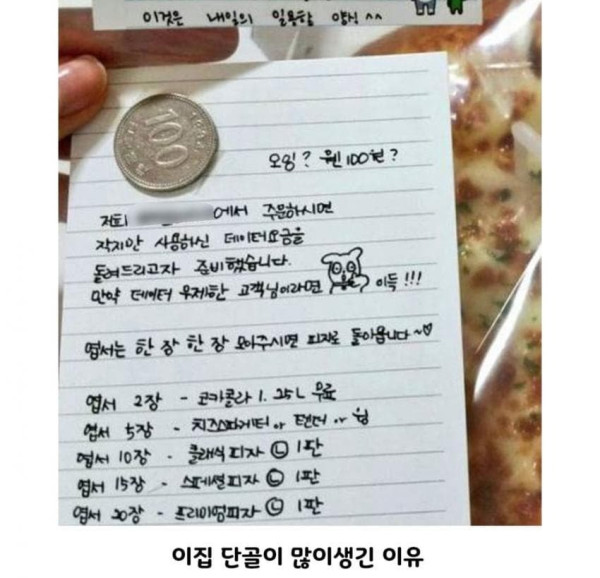 이것은 내일의 일용할 양식 ^^
100
오잉? 웬 100원?
저희 에서 주문하시면
작지만 사용하신 데이터요금을
돌려드리고자 준비했습니다.
만약 데이터 무제한 고객님이라면 이득!!!
엽서는 한 장 한 장 모아주시면 피자로 돌아옵니다~♡
엽서 2장 - 코카콜라 1.25L 무료
엽서 5장 - 치즈스파게티 or 텐더 or 윙
엽서 10장 - 클래식피자 Ⓛ 1판
엽서 15장 - 스페셜피자 Ⓛ 1판
엽서 20장 - 프리미엄피자 Ⓛ 1판
이집 단골이 많이생긴 이유